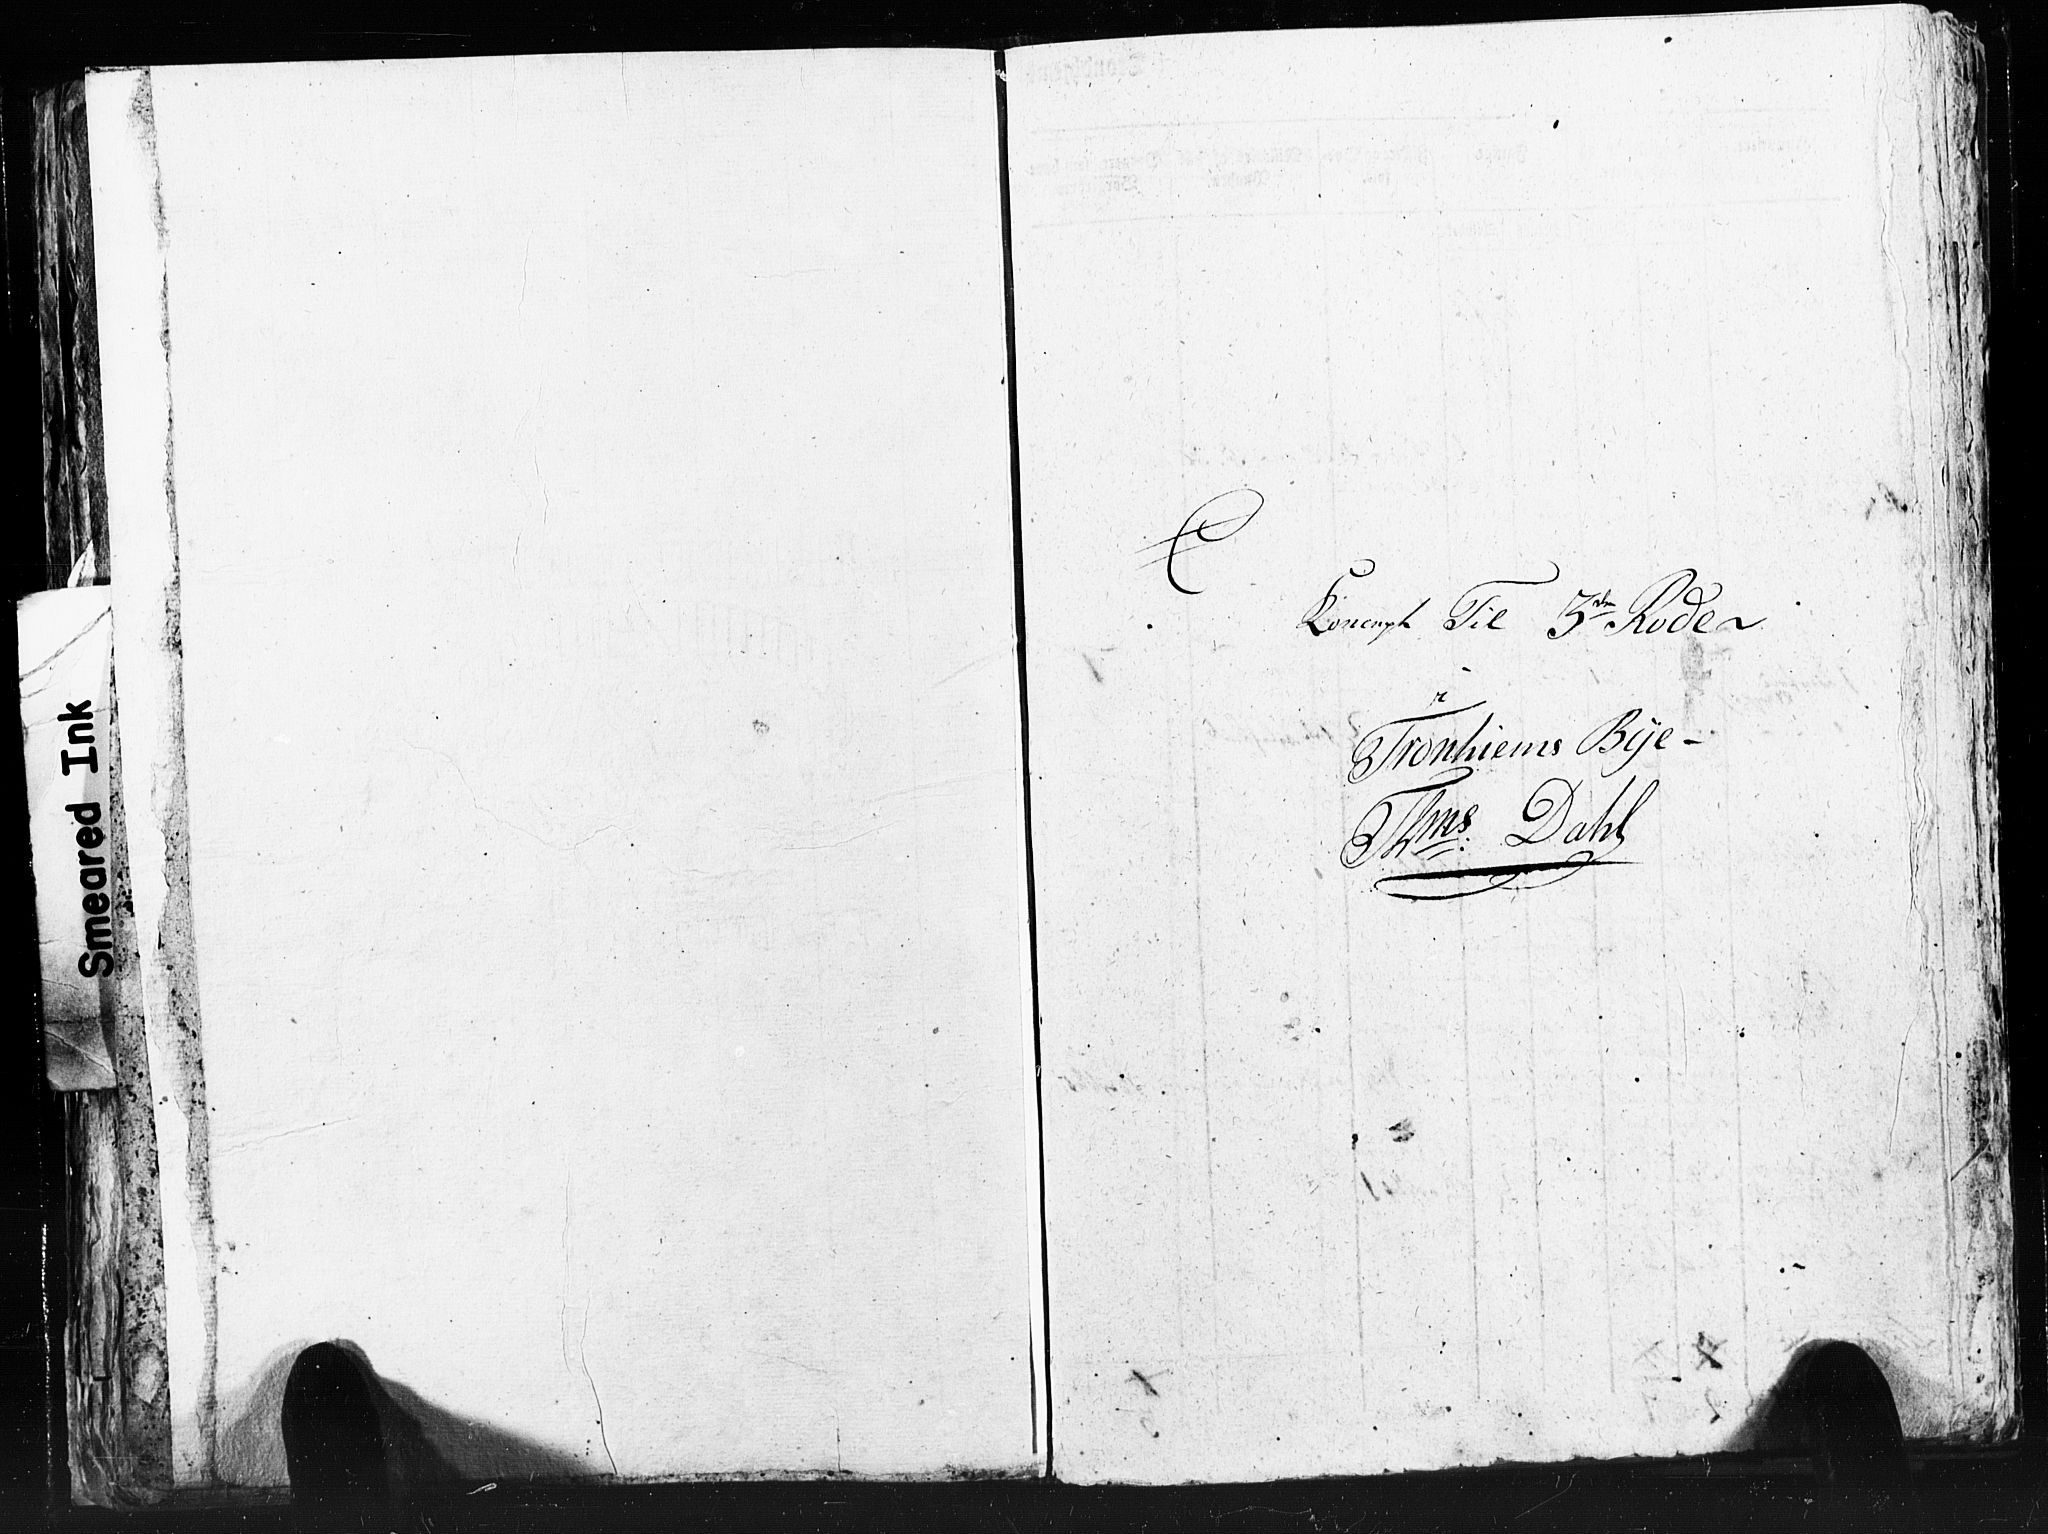 Smeared Ink
C
Koncept Til 3de Rode
i
Tronhiems Bye-
Thms: Dahl